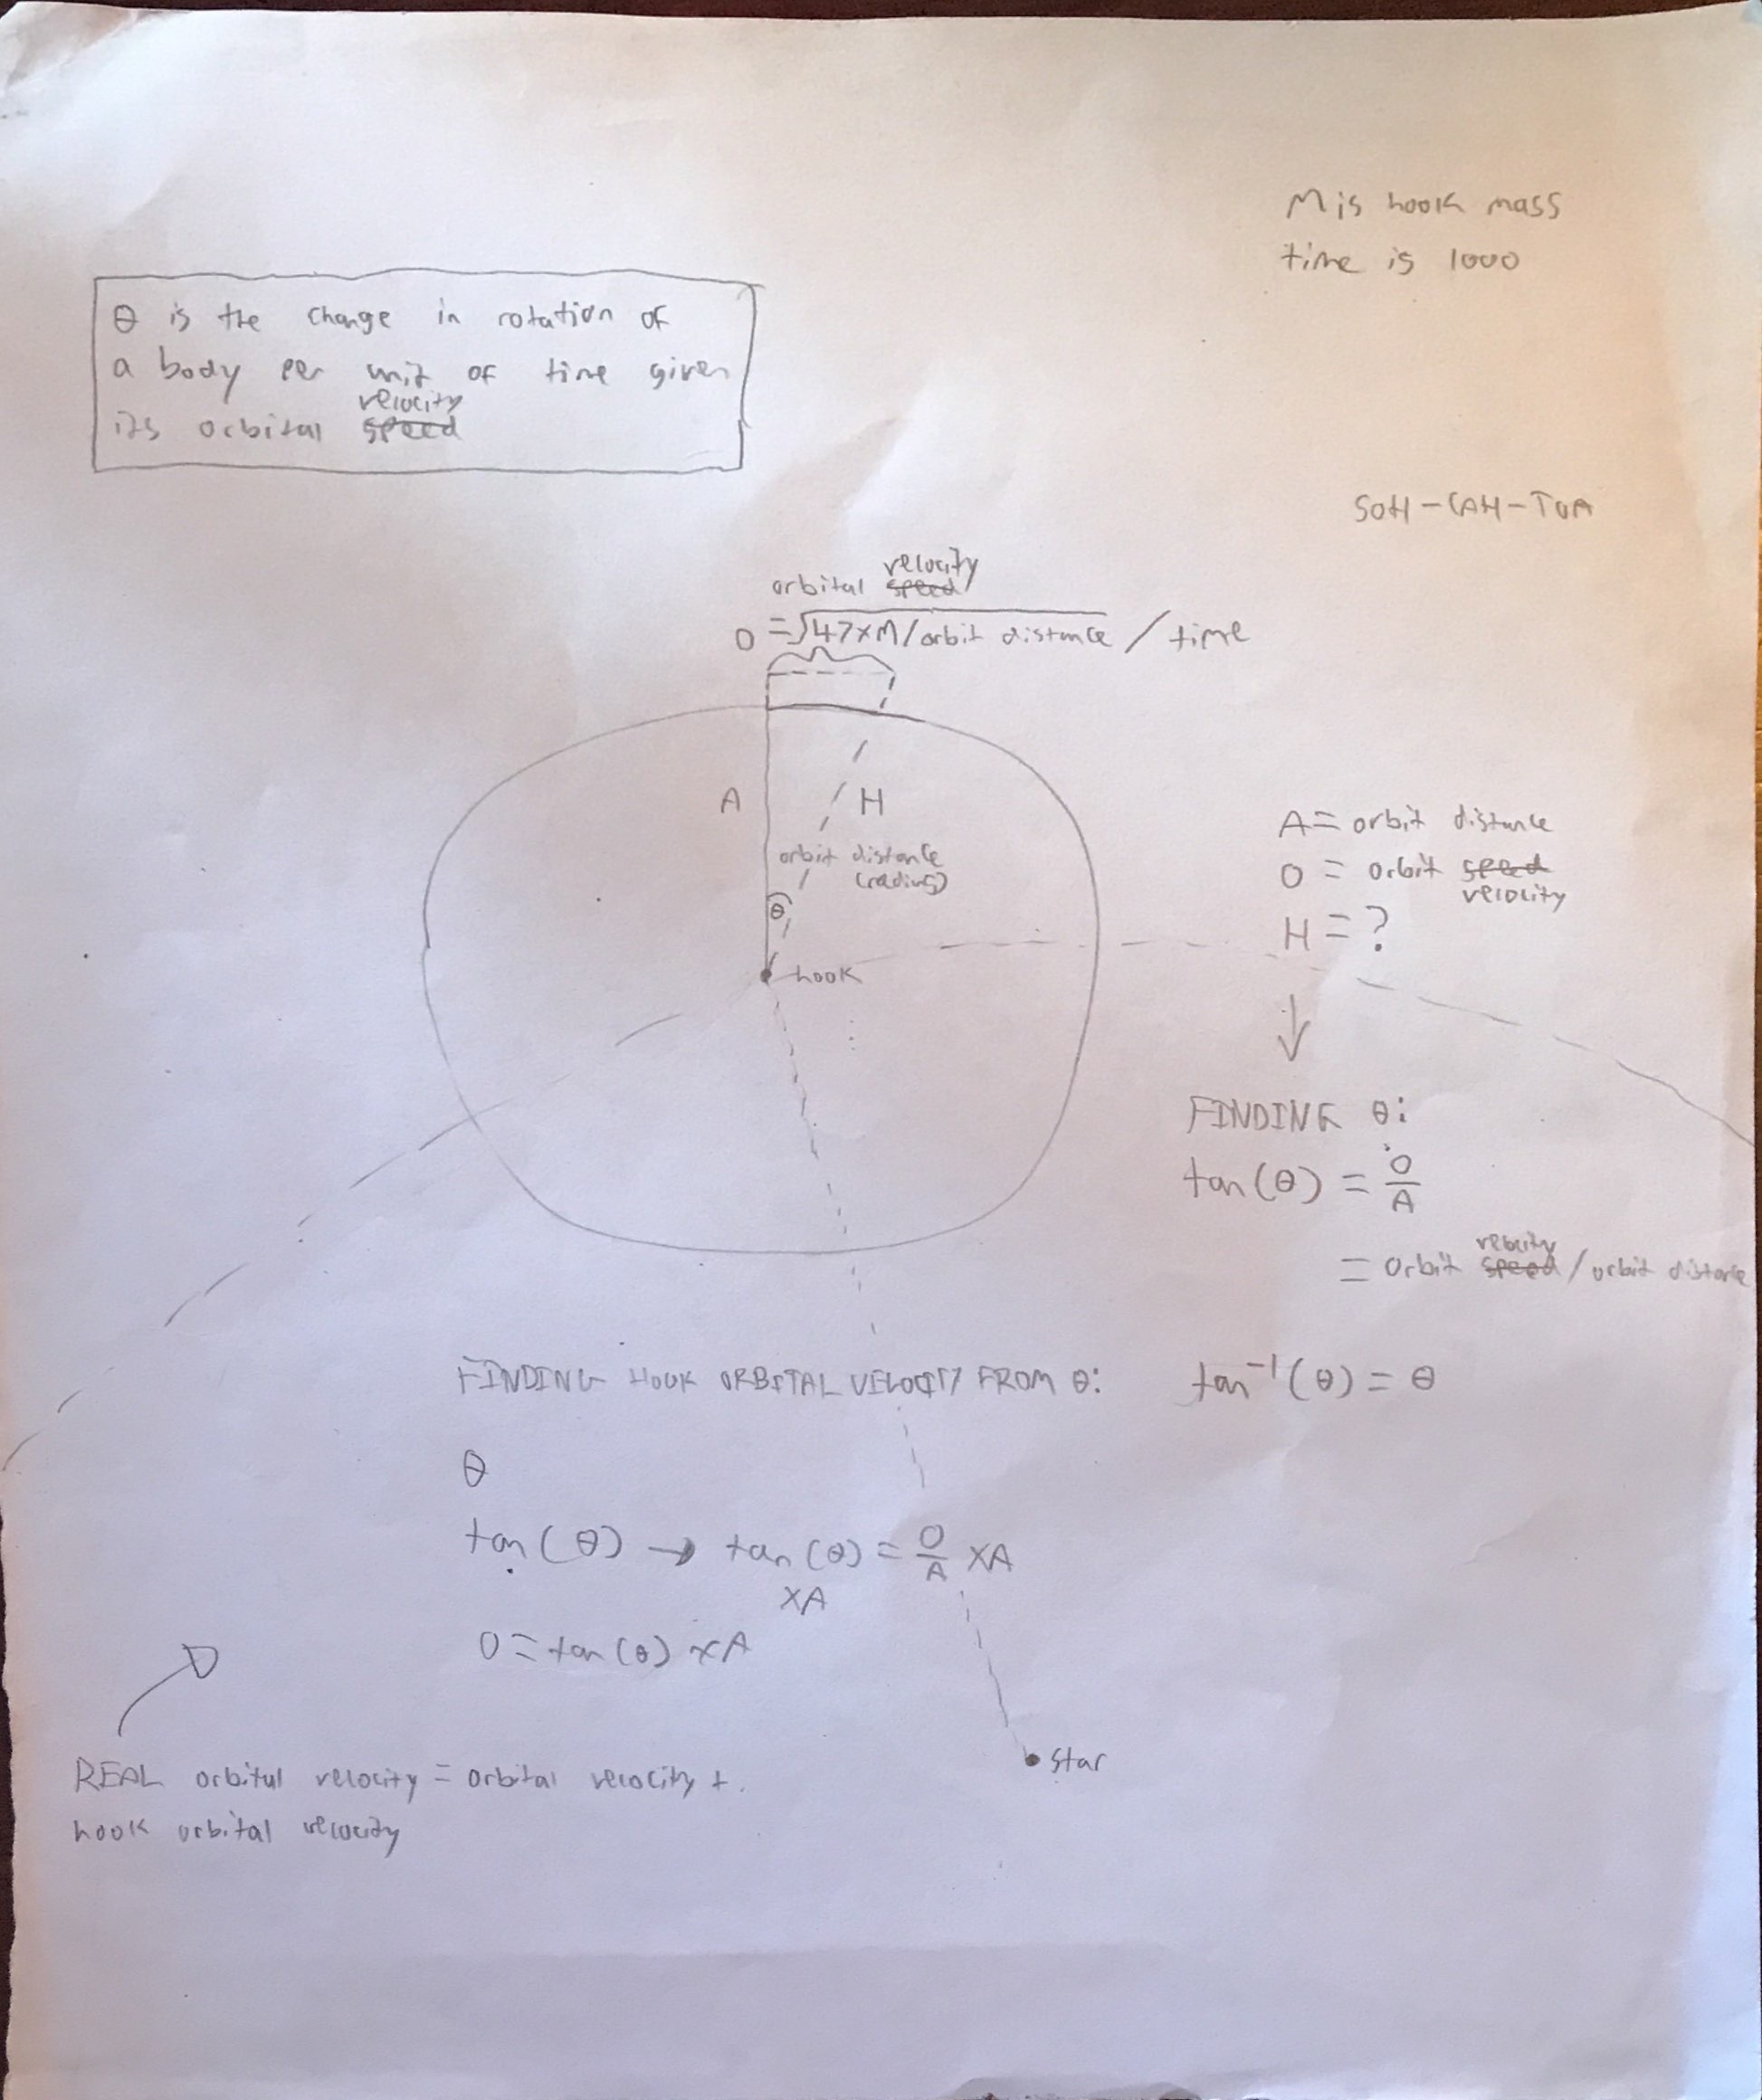 M is hook mass
time is 1000
θ is the change in rotation of
a body per unit of time given
its orbital speed velocity
SOH-CAH-TOA
orbital speed velocity
O = √47xM/orbit distance / time
A
H
orbit distance
(radius)
θ
hook
A = orbit distance
O = orbit speed
velocity
H = ?
FINDING θ:
tan(θ) = O/A
= orbit speed velocity / orbit distance
tan⁻¹(θ) = θ
FINDING HOOK ORBITAL VELOCITY FROM θ:
θ
tan(θ) → tan(θ) = O/A xA
xA
O = tan(θ) xA
star
REAL orbital velocity = orbital velocity +
hook orbital velocity